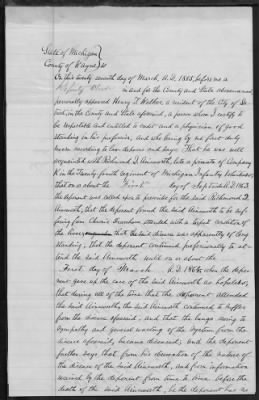 State of Michigan }
County of Wayne } ss
On this twenty seventh day of March, A.D. 1885, before me a
Deputy Clerk in and for the County and State aforesaid
personally appeared Henry F. a resident of the City of De-
troit, in the County and State aforesaid, a person whom I certify to
be reputable and entitled to credit and a physician of good
standing in his profession, and who being by me first duly
sworn according to law deposes and says: That he was well
acquainted with Richmond D. Ainsworth, late a private of Company
K in the Twenty fourth regiment of Michigan Infantry Volunteers;
that on or about the First day of September A.D. 1863,
the deponent was called upon to prescribe for the said Richmond D.
Ainsworth; that the deponent found the said Ainsworth to be suf-
fering from Chronic Diarrhoea attended with a condition of
the liver, that the said disease was apparently of long
standing; that the deponent continued professionally to at-
tend the said Ainsworth until on or about the
First day of March A.D. 1864, when the depon-
ent gave up the care of the said Ainsworth as hopeless,
that during all of the time that the deponent attended
the said Ainsworth, the said Ainsworth continued to suffer
from the disease aforesaid, and that the lungs owing to
sympathy and general wasting of the system from the
disease aforesaid, became diseased; and the deponent
further says that from his observation of the nature of
the disease of the said Ainsworth, and from information
received by the deponent from time to time before the
death of the said Ainsworth, he the deponent has no